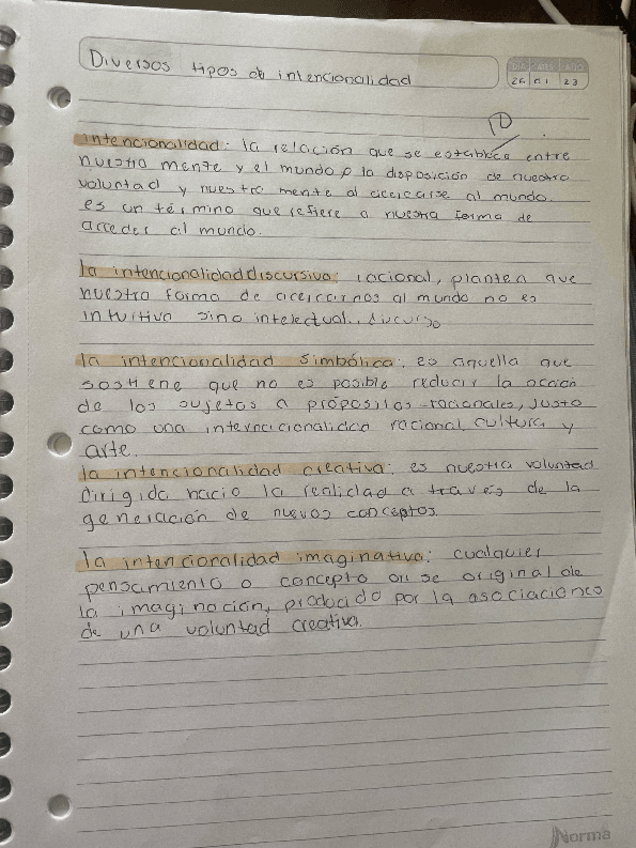 Diversos tipos de intencionalidad
DIA MES AÑO
26 01 23
intencionalidad: la relación que se establece entre
nuestra mente y el mundo o la disposición de nuestra
voluntad y nuestra mente al acercarse al mundo.
es un término que refiere a nuestra forma de
acceder al mundo.
la intencionalidad discursiva: racional, plantea que
nuestra forma de acercarnos al mundo no es
intuitiva sino intelectual. discurso
la intencionalidad simbólica: es aquella que
sostiene que no es posible reducir la acción
de los sujetos a propósitos racionales, justo
como una internacionalidad racional, cultura y
arte.
la intencionalidad creativa: es nuestra voluntad
dirigida hacia la realidad a través de la
generación de nuevos conceptos.
la intencionalidad imaginativa: cualquier
pensamiento o concepto se original de
la imaginación, producido por la asociaciones
de una voluntad creativa.
Norma